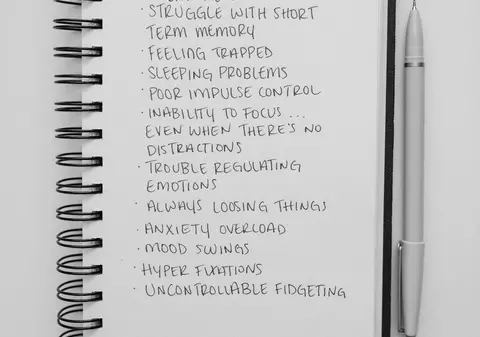 · STRUGGLE WITH SHORT
TERM MEMORY
· FEELING TRAPPED
· SLEEPING PROBLEMS
· POOR IMPULSE CONTROL
· INABILITY TO FOCUS ...
EVEN WHEN THERE'S NO
DISTRACTIONS
· TROUBLE REGULATING
EMOTIONS
· ALWAYS LOOSING THINGS
· ANXIETY OVERLOAD
· MOOD SWINGS
· HYPER FIXATIONS
· UNCONTROLLABLE FIDGETING